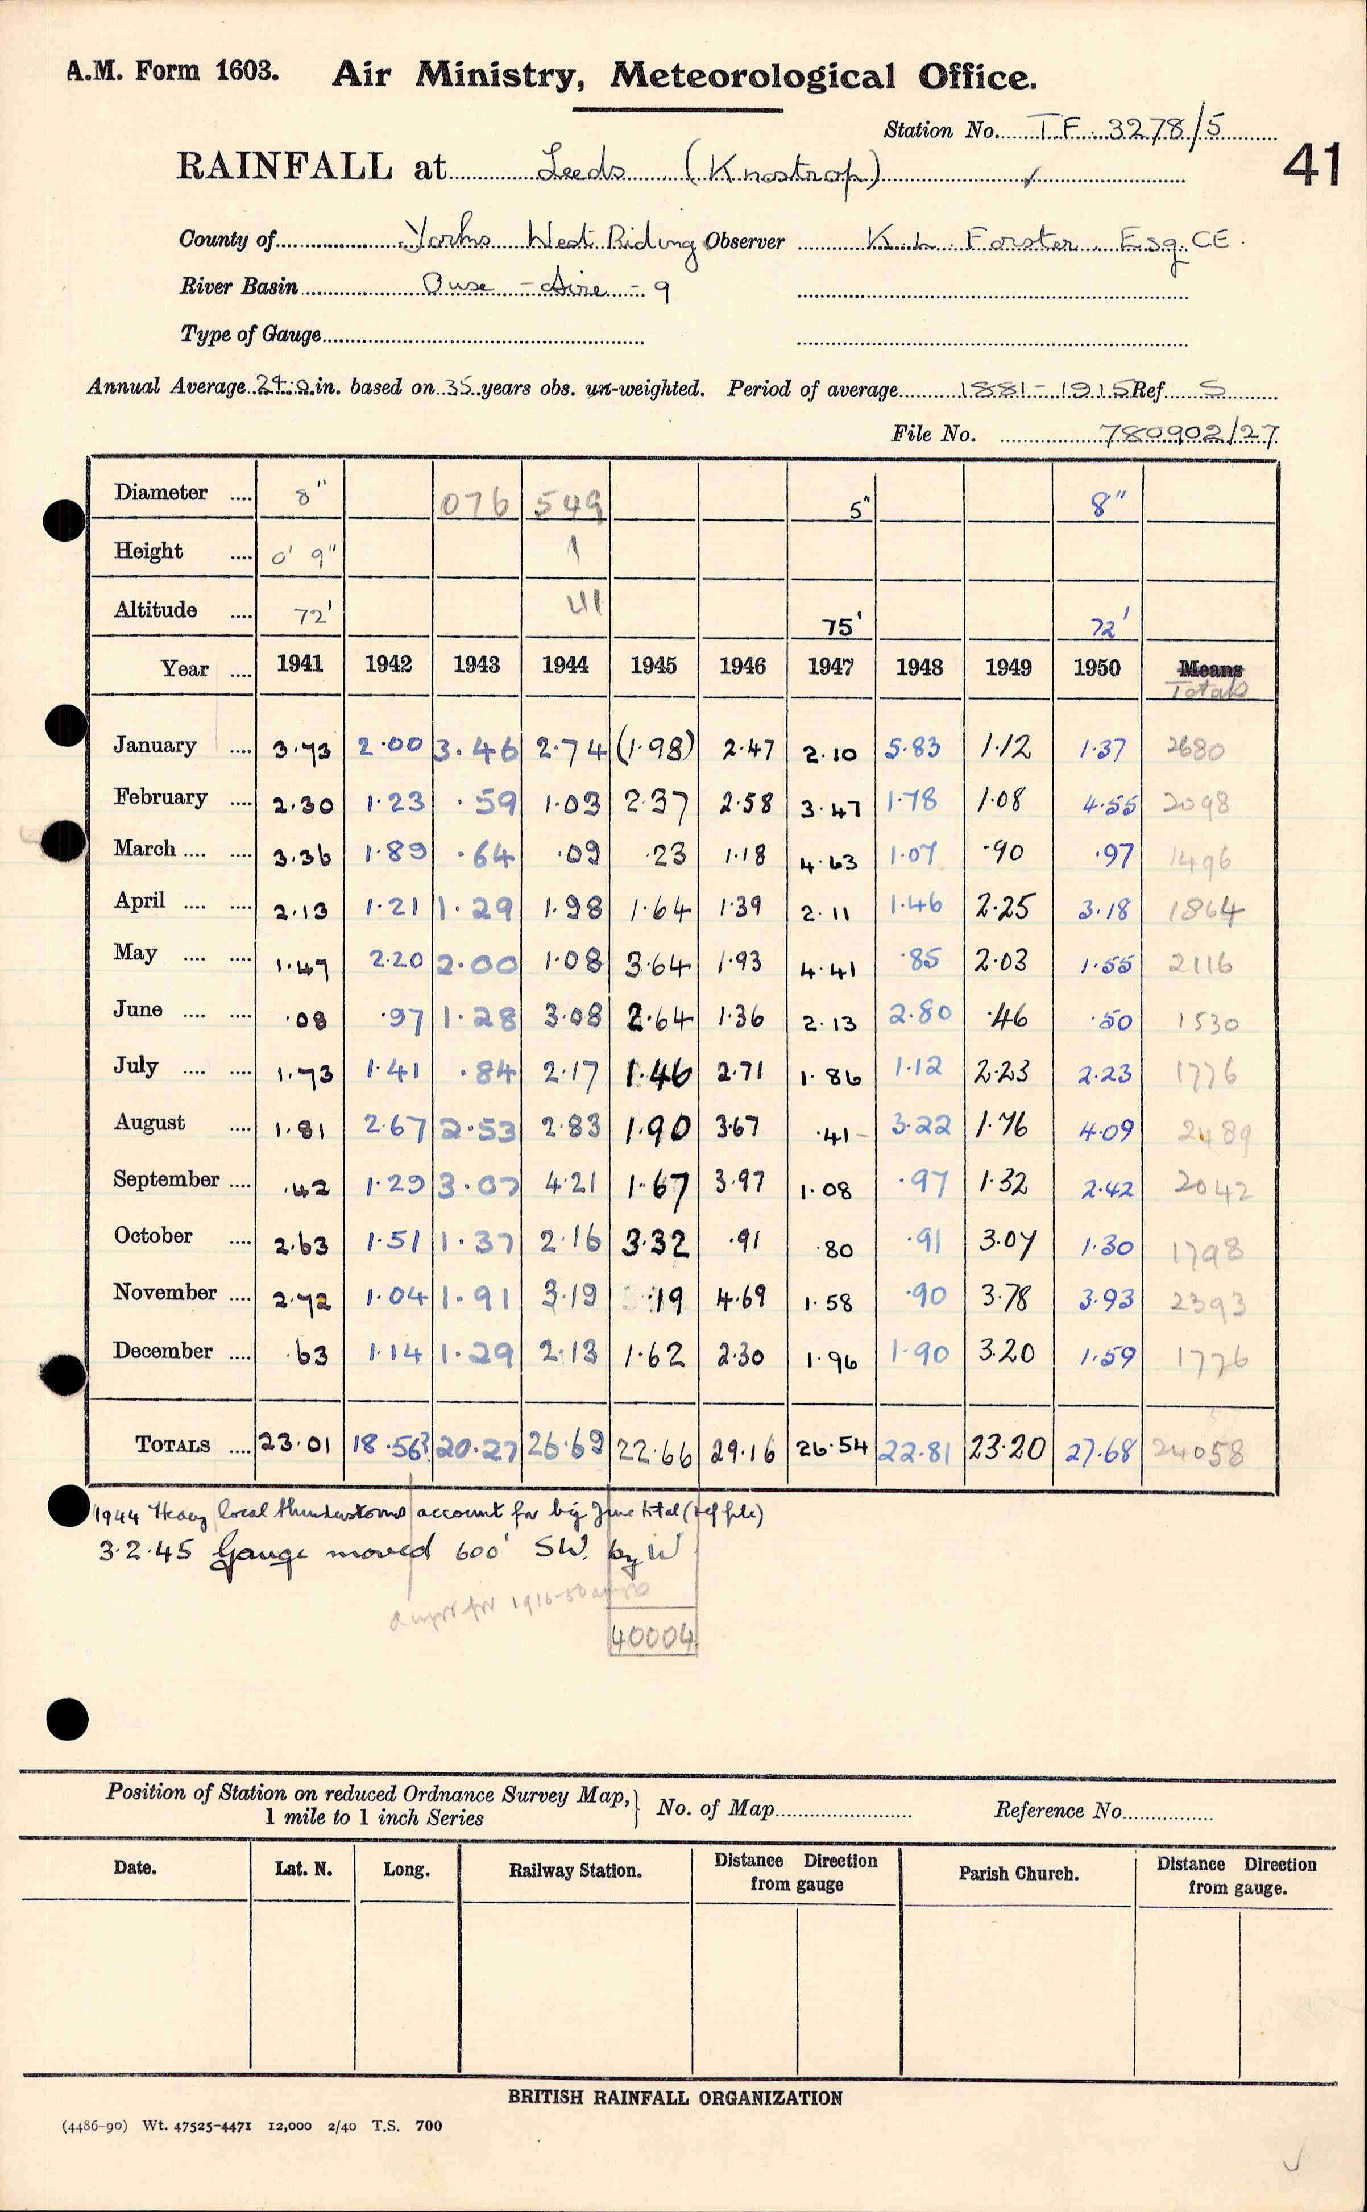 A.M. Form 1603. Air Ministry, Meteorological Office.
Station No. TF 3278/5
41
RAINFALL at Leeds (Knostrop) ✓
County of Yorks West Riding Observer K. L. Forster, Esq. CE.
River Basin Ouse - Aire - 9
Type of Gauge
Annual Average 24.0 in. based on 35 years obs. un-weighted. Period of average 1881-1915 Ref S
File No. 780902/27
Diameter .... 8" 076 549 5" 8"
Height .... 0' 9" 1
Altitude .... 72' 75' 72'
Year .... 1941 1942 1943 1944 1945 1946 1947 1948 1949 1950 Means Totals
January .... 3.73 2.00 3.46 2.74 (1.98) 2.47 2.10 5.83 1.12 1.37 2680
February .... 2.30 1.23 .59 1.03 2.37 2.58 3.47 1.78 1.08 4.55 2098
March .... .... 3.36 1.89 .64 .09 .23 1.18 4.63 1.07 .90 .97 1496
April .... .... 2.13 1.21 1.29 1.98 1.64 1.39 2.11 1.46 2.25 3.18 1864
May .... .... 1.47 2.20 2.00 1.08 3.64 1.93 4.41 .85 2.03 1.55 2116
June .... .... .08 .97 1.28 3.08 2.64 1.36 2.13 2.80 .46 .50 1530
July .... .... 1.73 1.41 .84 2.17 1.46 2.71 1.86 1.12 2.23 2.23 1776
August .... 1.81 2.67 2.53 2.83 1.90 3.67 .41 3.22 1.76 4.09 2489
September .... .42 1.29 3.07 4.21 1.67 3.97 1.08 .97 1.32 2.42 2042
October .... 2.63 1.51 1.37 2.16 3.32 .91 .80 .91 3.07 1.30 1798
November .... 2.72 1.04 1.91 3.19 .19 4.69 1.58 .90 3.78 3.93 2393
December .... .63 1.14 1.29 2.13 1.62 2.30 1.96 1.90 3.20 1.59 1776
TOTALS .... 23.01 18.56? 20.27 26.69 22.66 29.16 26.54 22.81 23.20 27.68 24058
1944 Heavy local thunderstorms account for big June total (ref file)
3.2.45 Gauge moved 600' SW. by W
for 1916-50
40004
Position of Station on reduced Ordnance Survey Map, } No. of Map Reference No.
1 mile to 1 inch Series
Date. Lat. N. Long. Railway Station. Distance Direction from gauge Parish Church. Distance Direction from gauge.
BRITISH RAINFALL ORGANIZATION
(4486-90) Wt. 47525-4471 12,000 2/40 T.S. 700